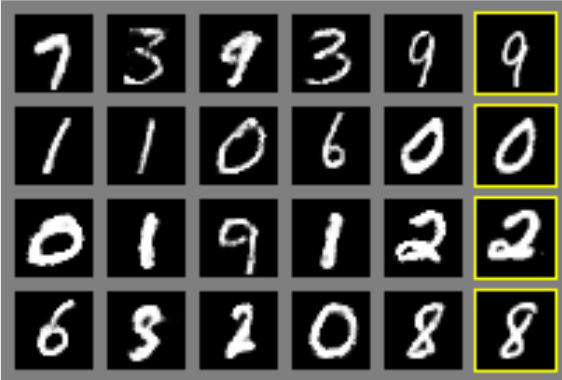 7 3 9 3 9 9
1 1 0 6 0 0
0 1 9 1 2 2
6 3 2 0 8 8